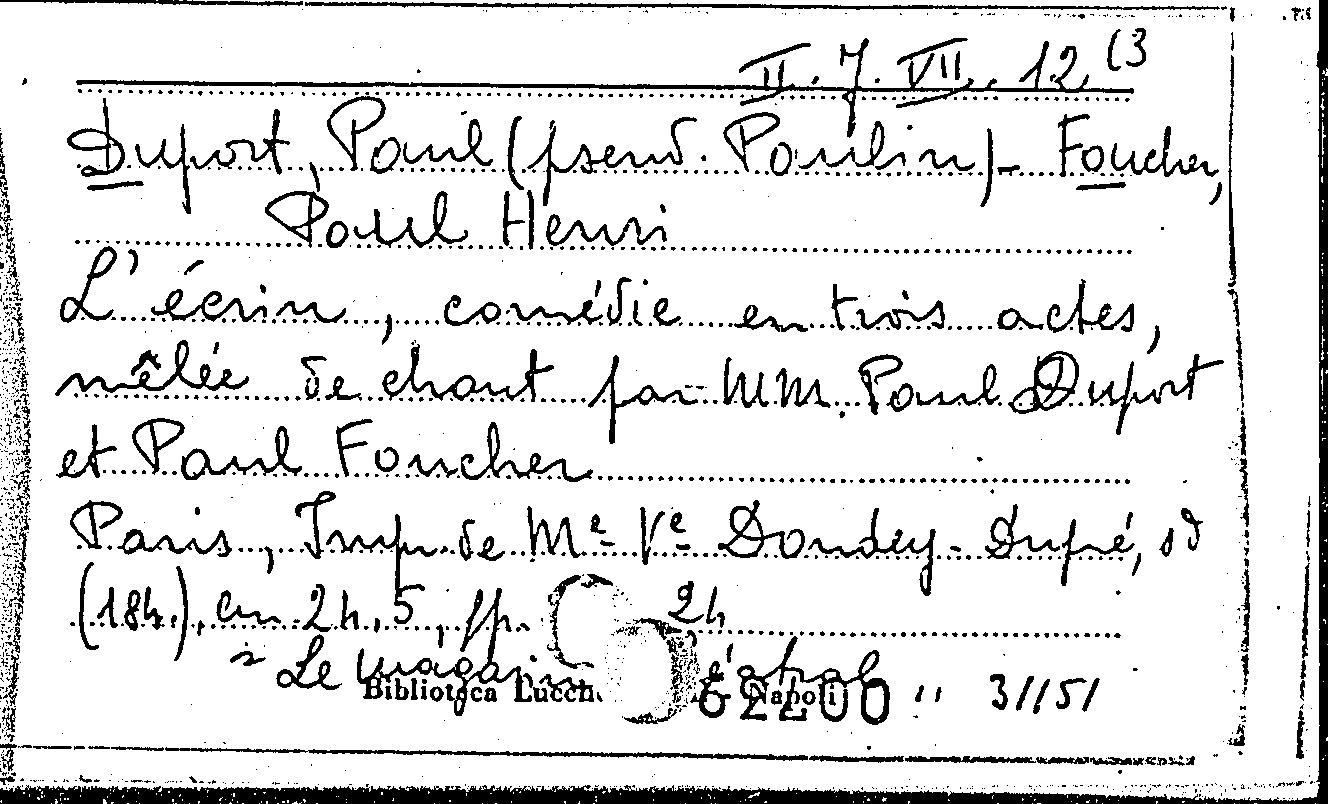 II. 7. VII. 12 (3
Duport, Paul (pseud. Paulin) - Foucher,
Paul Henri
L'écrin, comédie en trois actes,
mêlée de chant par MM. Paul Duport
et Paul Foucher
Paris, Imp. de Me Ve Dondey-Dupré, sd
(184.), cm 24,5, pp. 24
Le magasin
Biblioteca Lucch Napoli
62200 " 31151